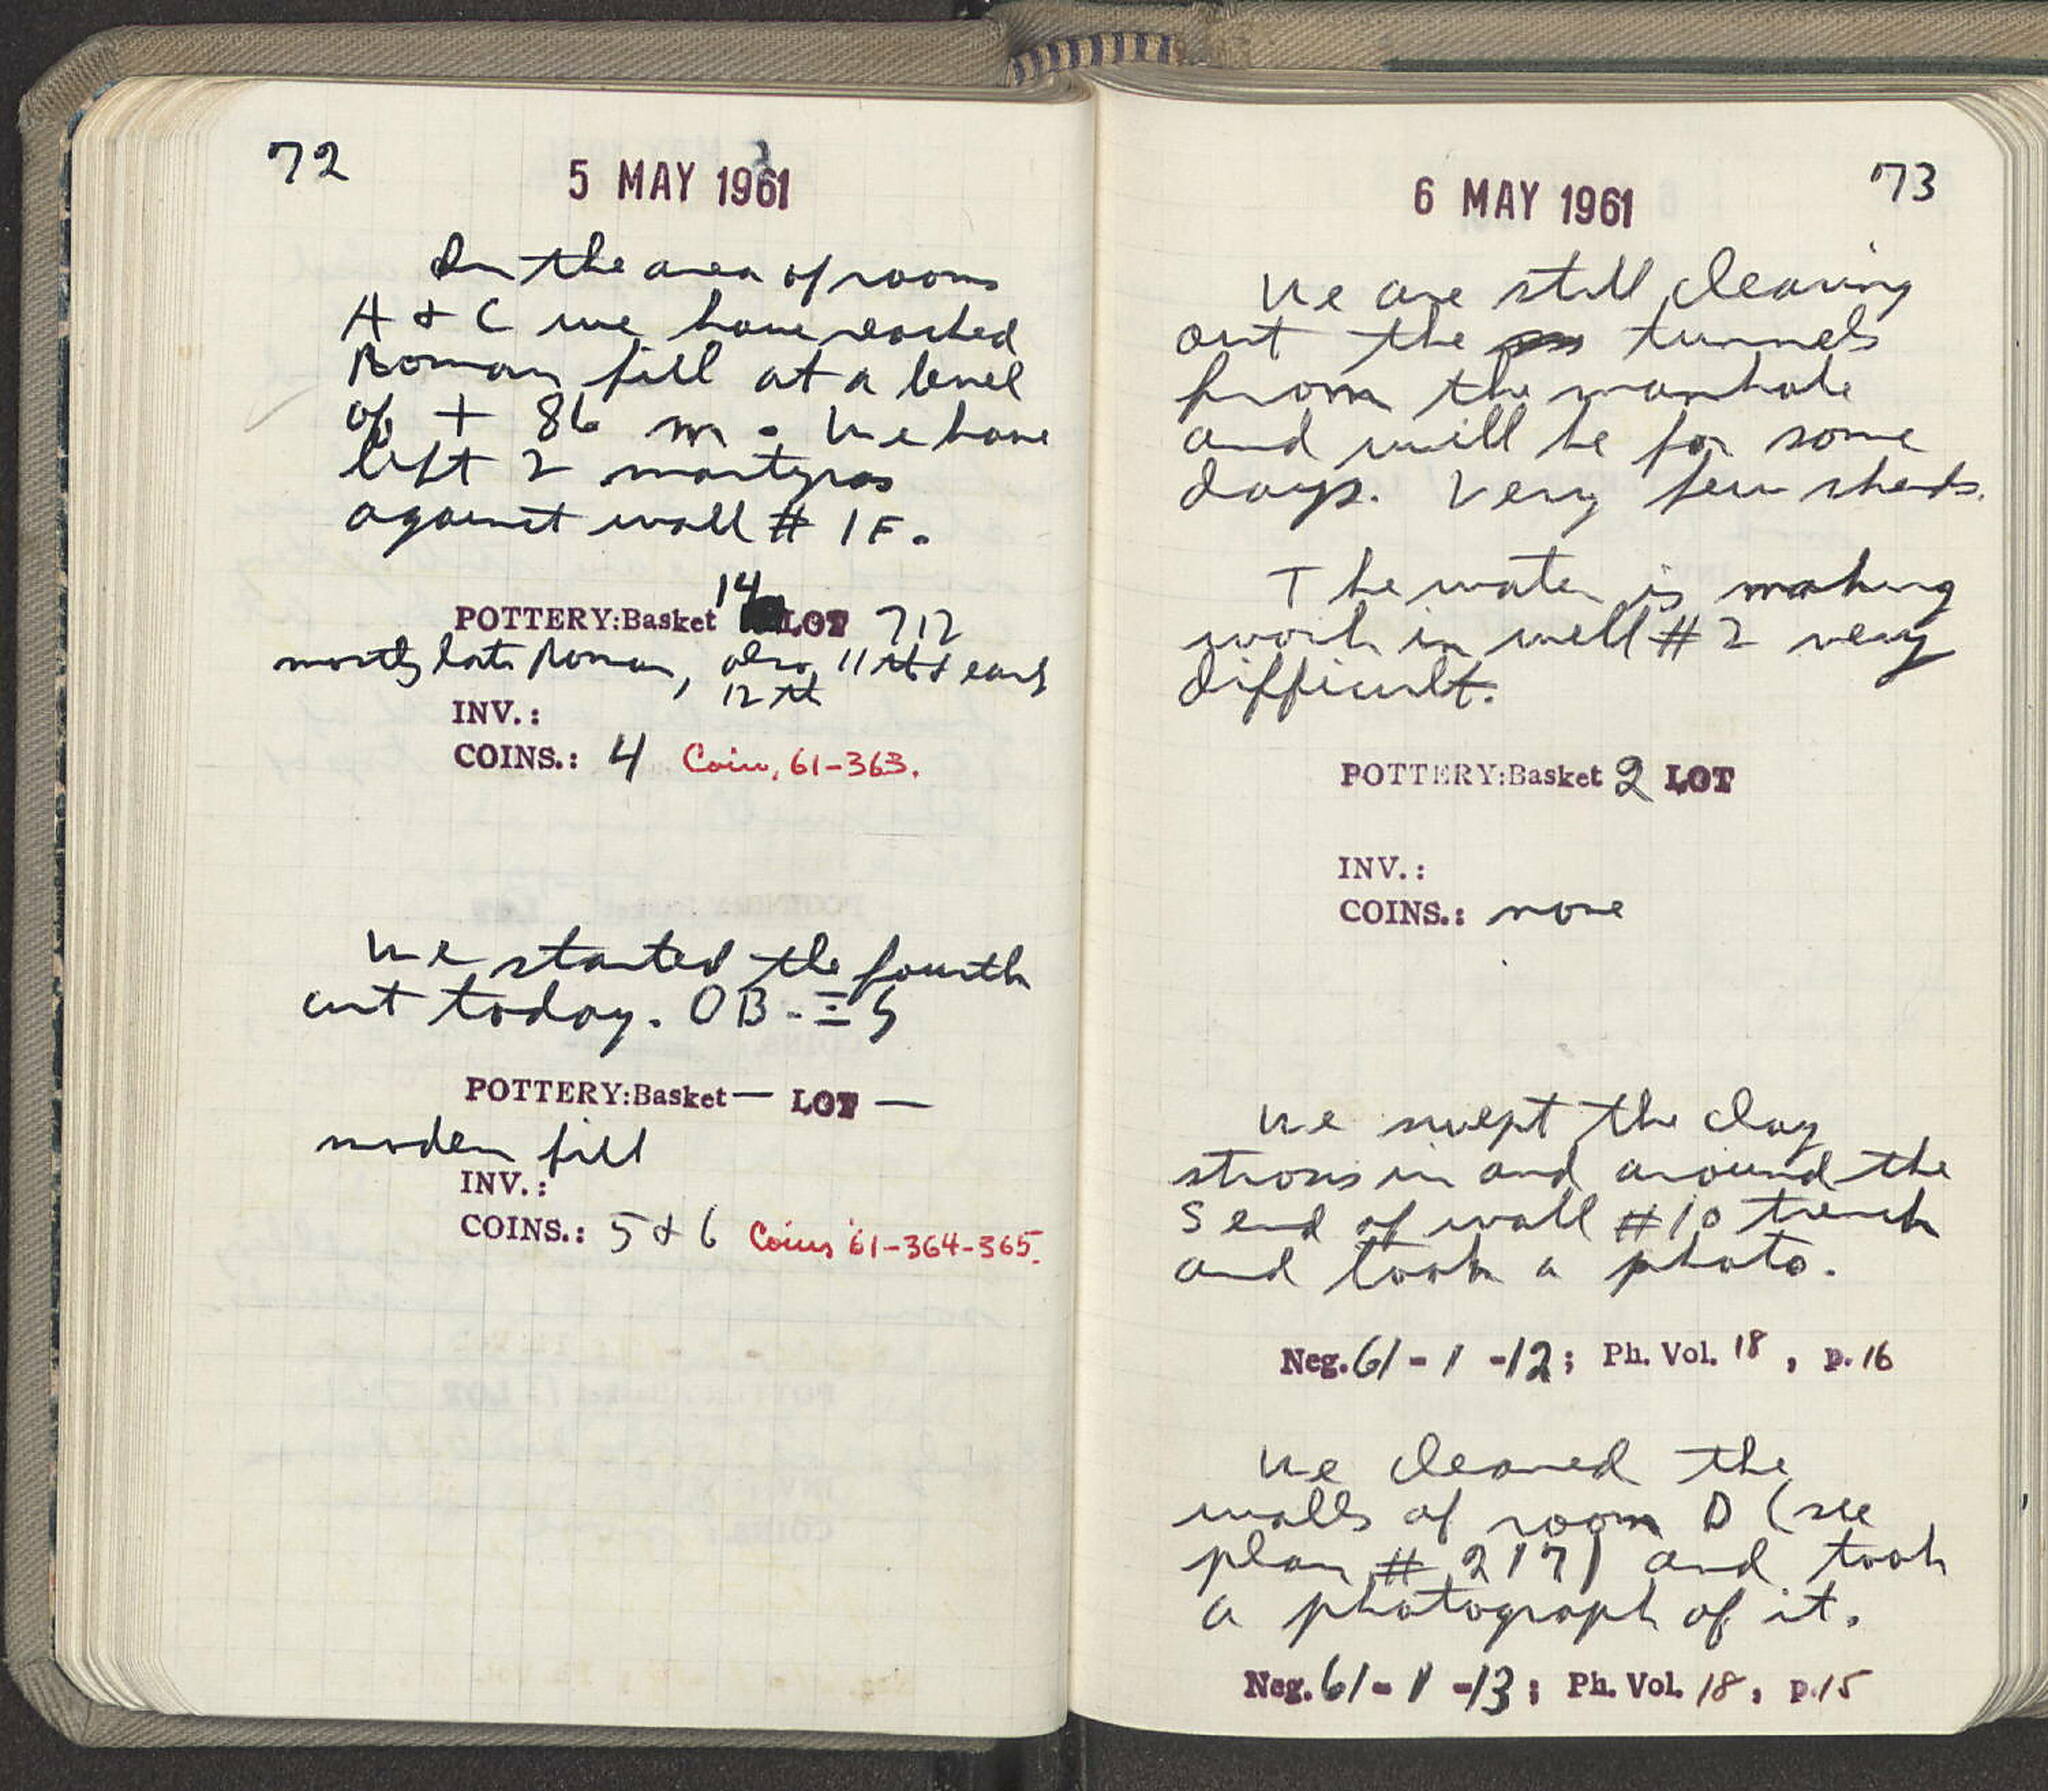 72
5 MAY 1961
In the area of rooms
A & C we have reached
Roman fill at a level
of + 86 m. We have
left 2 martyras
against wall # 1F.
14
POTTERY:Basket LOT 712
mostly late Roman, also 11th & early
12th
INV.:
COINS.: 4 Coin, 61-363.
We started the fourth
cut today. OB-
POTTERY:Basket — LOT —
modern fill
INV.:
COINS.: 5 & 6 Coins 61-364-365.
73
6 MAY 1961
We are still cleaning
out the tunnels
from the manhole
and will be for some
days. Very few sherds.
The water is making
work in well # 2 very
difficult.
POTTERY:Basket 2 LOT
INV.:
COINS.: none
We swept the clay
strosis in and around the
S end of wall #10 trench
and took a photo.
Neg. 61-1-12; Ph. Vol. 18, p. 16
We cleaned the
walls of room D (see
plan # 217) and took
a photograph of it.
Neg. 61-1-13; Ph. Vol. 18, p. 15